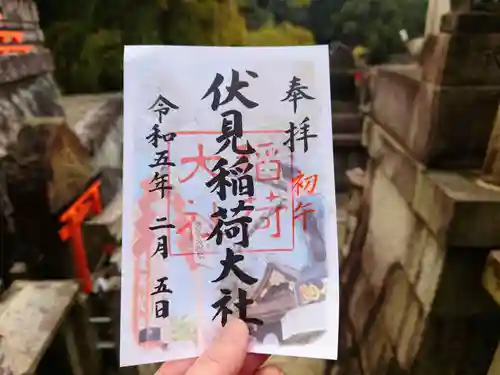 奉拝
初午
伏見稲荷大社
令和五年二月五日
稲荷
大社